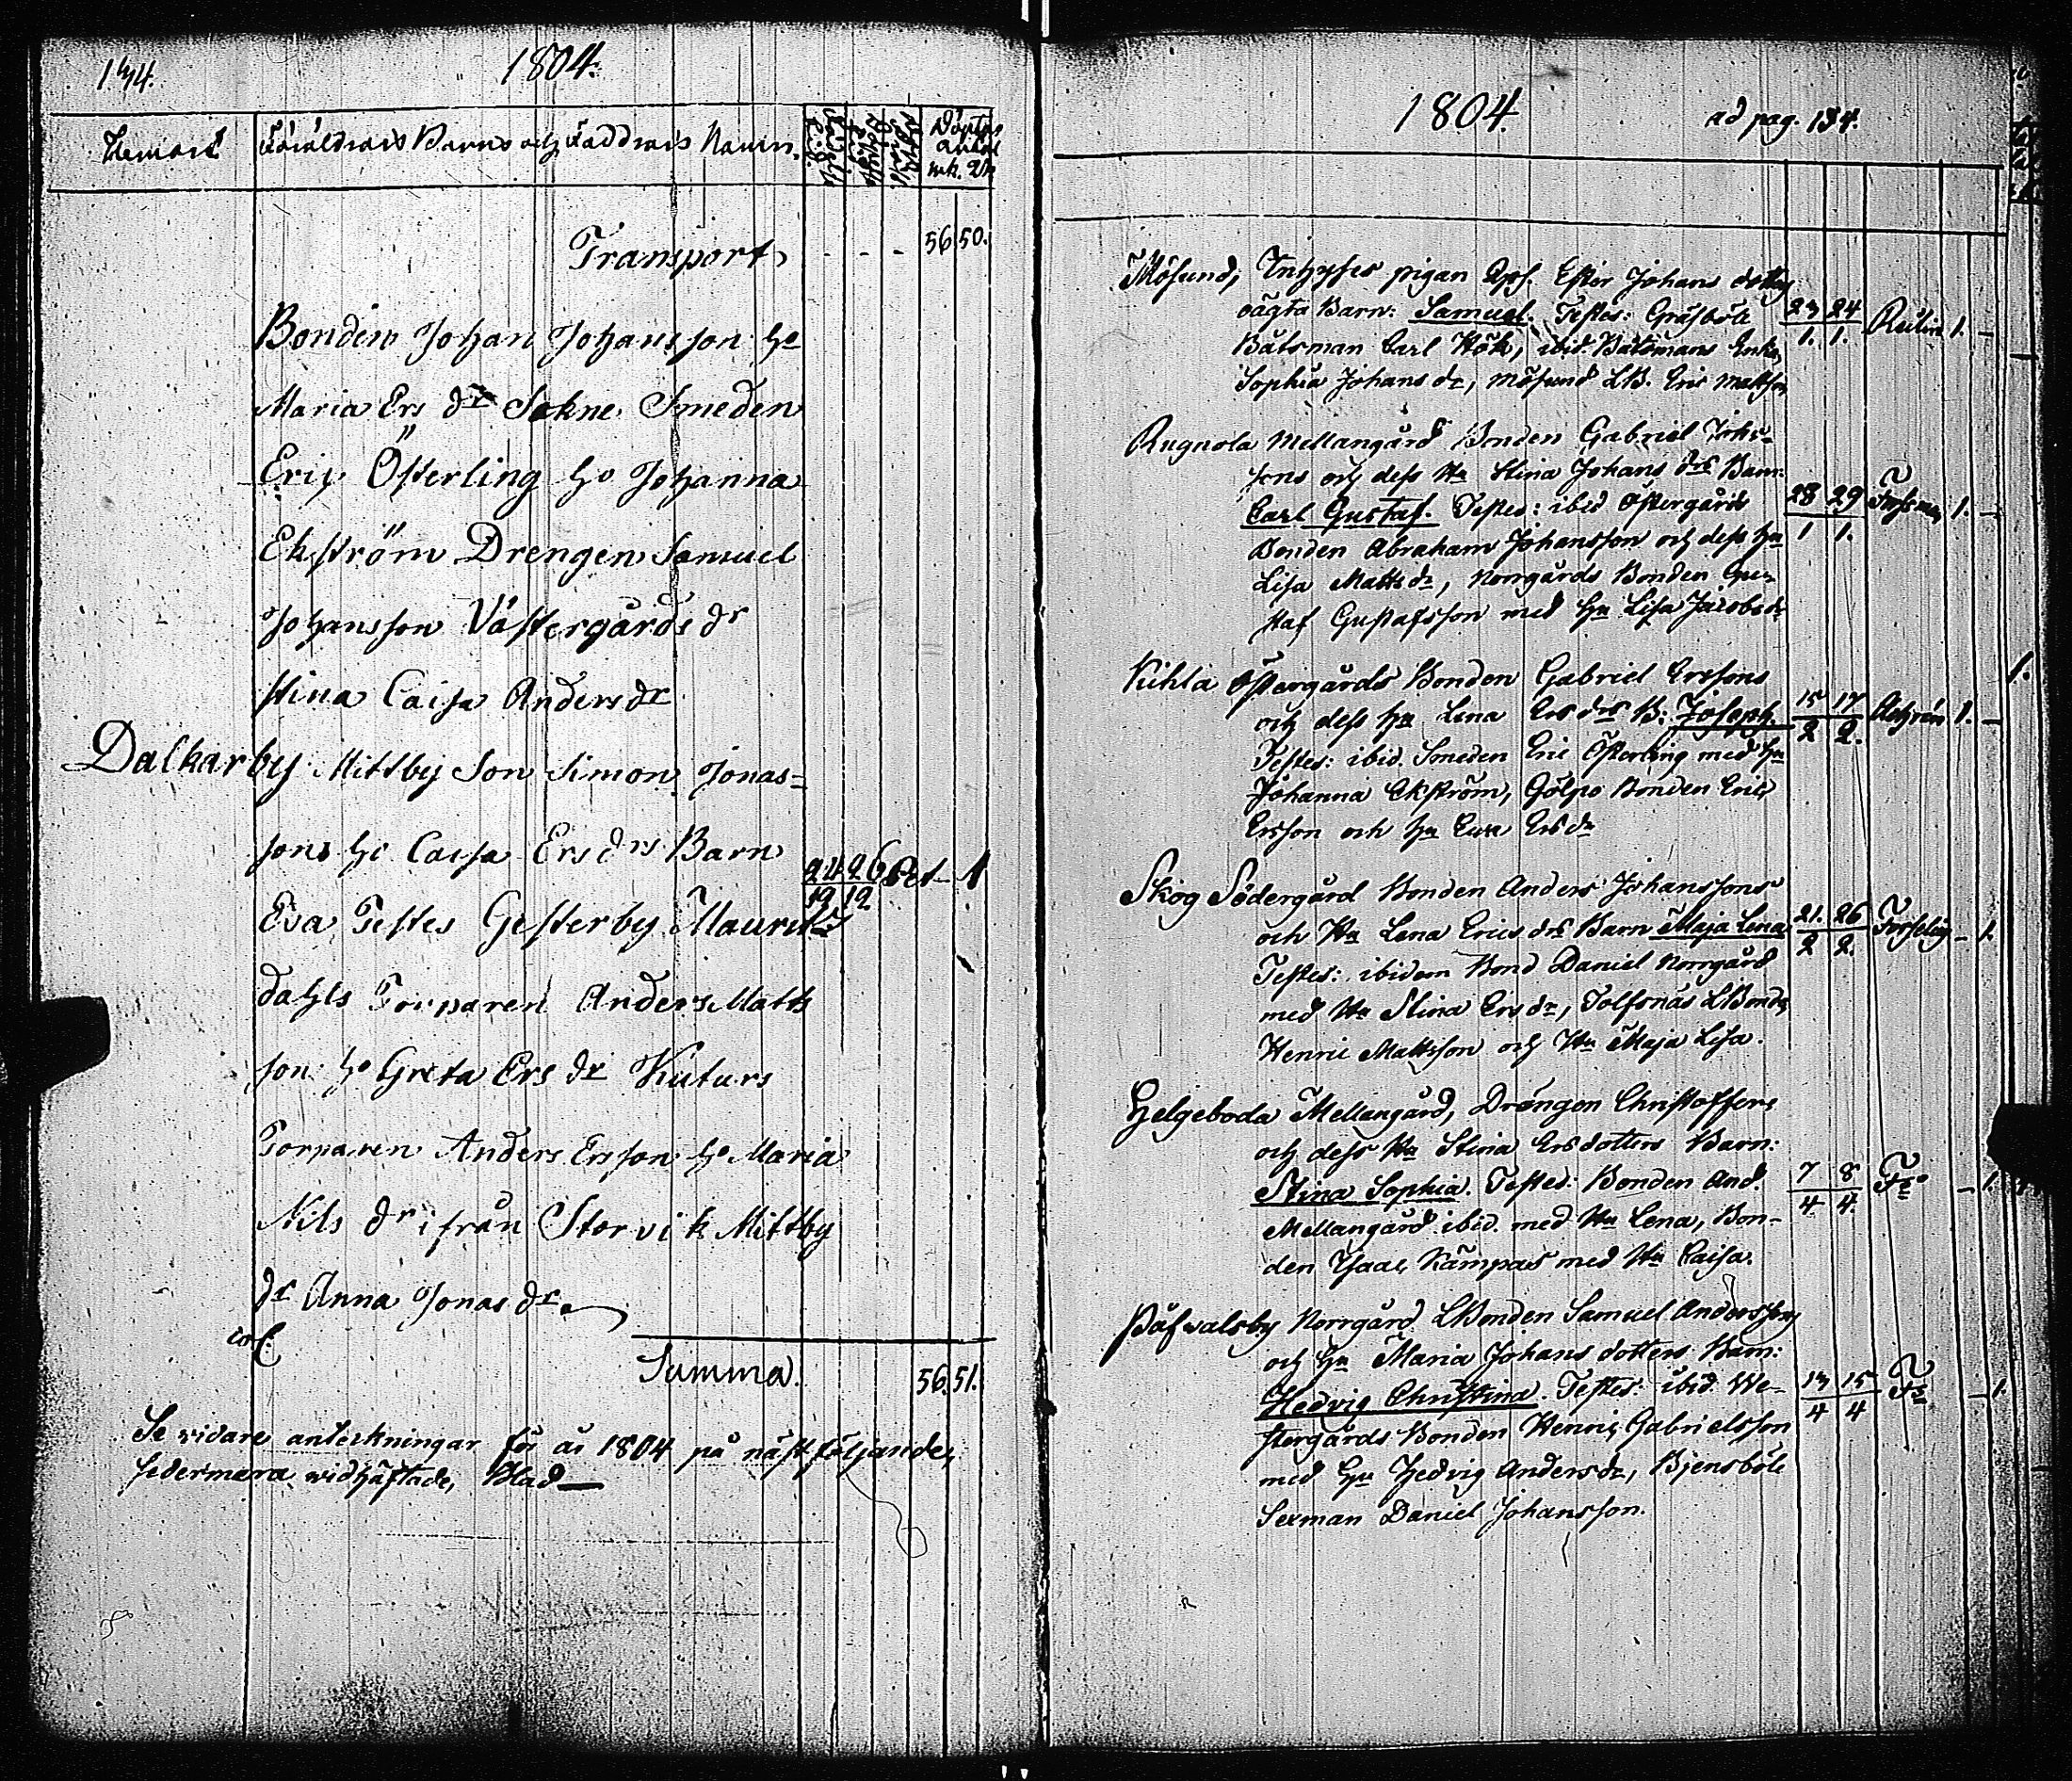 134.
1804.
Hemort Föräldrars Barns och Faddrars Namn.
Döptas antal
mk. Qk
Transport - - - 56 50.
Bonden Johan Johansson ho
Maria Ers dr Sokne Smeden
Eric Österling ho Johanna
Ekström Drengen Samuel
Johansson Västergårds dr
Stina Caisa Andersdr
Dalkarby Mittby Son Simon Jonas=
sons ho Caisa Ers drs Barn
24 26 1
12 12
Eva Testes Gesterby Maurits
dahls Torparen Anders Matts
son ho Greta Ers dr
Torparen Anders Ersson ho Maria
Nils dr ifrån Storvik Mittby
dr Anna Jonas dr
Summa. 56. 51.
Se vidare anteckningar för år 1804 på näst följande,
sedermera vidhäftade, Blad
1804.
ad pag. 134.
Mösund, Inhyses pigan Ester Johans dotters
oägta Barn: Samuel. Testes: Gräsböle
23 24 1. -
1. 1.
Båtsman Carl Hök, ibid. Båtsmans Enka
Sophia Johans dr, Mösund LB. Eric Mattson
Rugnola Mellangård Bonden Gabriel Johs-
sons och dess Hu Stina Johans drs Barn:
Carl Gustaf. Testes: ibid Östergårds
28 29 Forsman 1. -
1 1.
Bonden Abraham Johansson och dess hu
Lisa Matts dr, Norrgårds Bonden Gus-
taf Gustafsson med hu Lisa Jacobs dr
Kihla Östergårds Bonden Gabriel Ersons
och dess hu Lena Ers drs B: Joseph.
15 17 1. -
2 2.
Testes: ibid. Smeden Eric Österling med hu
Johanna Ekström, Gölpo Bonden Eric
Ersson och hu Ers dr
Skog Södergård Bonden Anders Johanssons
och Hu Lena Erics drs Barn Maja Lena
21. 26 - 1.
2 2.
Testes: ibidem Bond Daniel Norrgård
med Hu Stina Ers dr, Tolfsnäs LBonde
Henric Mattsson och Hu Maja Lisa.
Helgeboda Mellangård, Drängen Christoffers
och dess Hu Stina Ersdotters Barn:
Stina Sophia. Testes: Bonden And.
7 8 - 1.
4 4.
Mellangård ibid. med Hu Lena, Bon-
den Isaac Kämpars med Hu Caisa.
Påfvalsby Norrgård LBonden Samuel Andersson
och hu Maria Johans dotters Barn:
Hedvig Christina. Testes: ibid. We-
13 15 - 1.
4 4
stergårds Bonden Henric Gabrielsson
med hu Hedvig Anders dr, Bjensböle
Sexman Daniel Johansson.